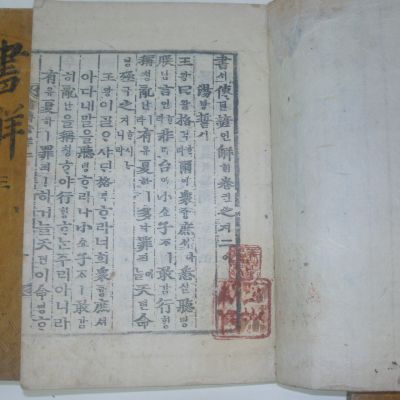 書셔傳젼諺언解ᄒᆡ卷권之지二이
湯탕誓셔
王왕曰왈格격爾이衆즁庶셔아悉실聽텽
朕딤言언ᄒᆞ라非비台이小쇼子ᄌᆞㅣ敢감行ᄒᆡᆼ
稱칭亂란이라有유夏하ㅣ多다罪죄ㅣ어ᄂᆞᆯ天텬命
명殛극之지시니라
王왕이ᄀᆞᆯᄋᆞ샤ᄃᆡ格격ᄒᆞ라너희衆즁庶셔
아다내말을聽텽ᄒᆞ라나小쇼子ᄌᆞㅣ敢감
히亂란을稱칭ᄒᆞ야行ᄒᆡᆼᄒᆞᄂᆞᆫ주리아니라
有유夏하ㅣ罪죄ㅣ하거ᄂᆞᆯ天텬이命명ᄒᆞ
書解